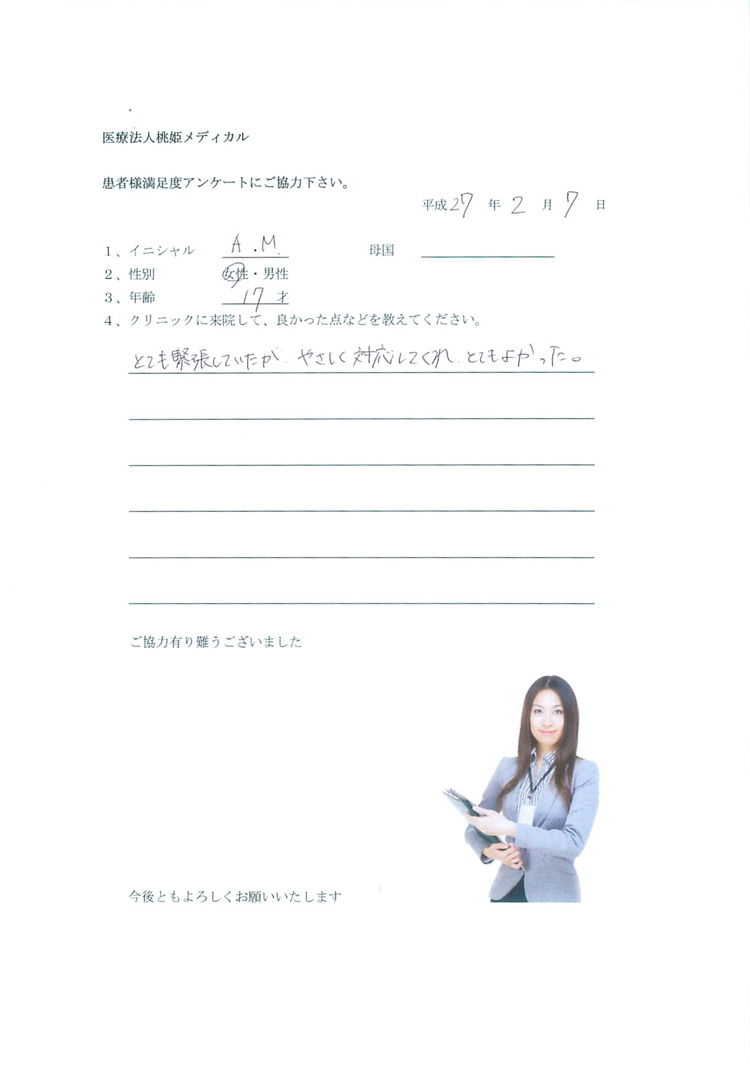 医療法人桃姫メディカル
患者様満足度アンケートにご協力下さい。
平成27年2月7日
1、イニシャル A.M. 母国
2、性別 女性・男性
3、年齢 17才
4、クリニックに来院して、良かった点などを教えてください。
とても緊張していたが、やさしく対応してくれ、とてもよかった。
ご協力有り難うございました
今後ともよろしくお願いいたします